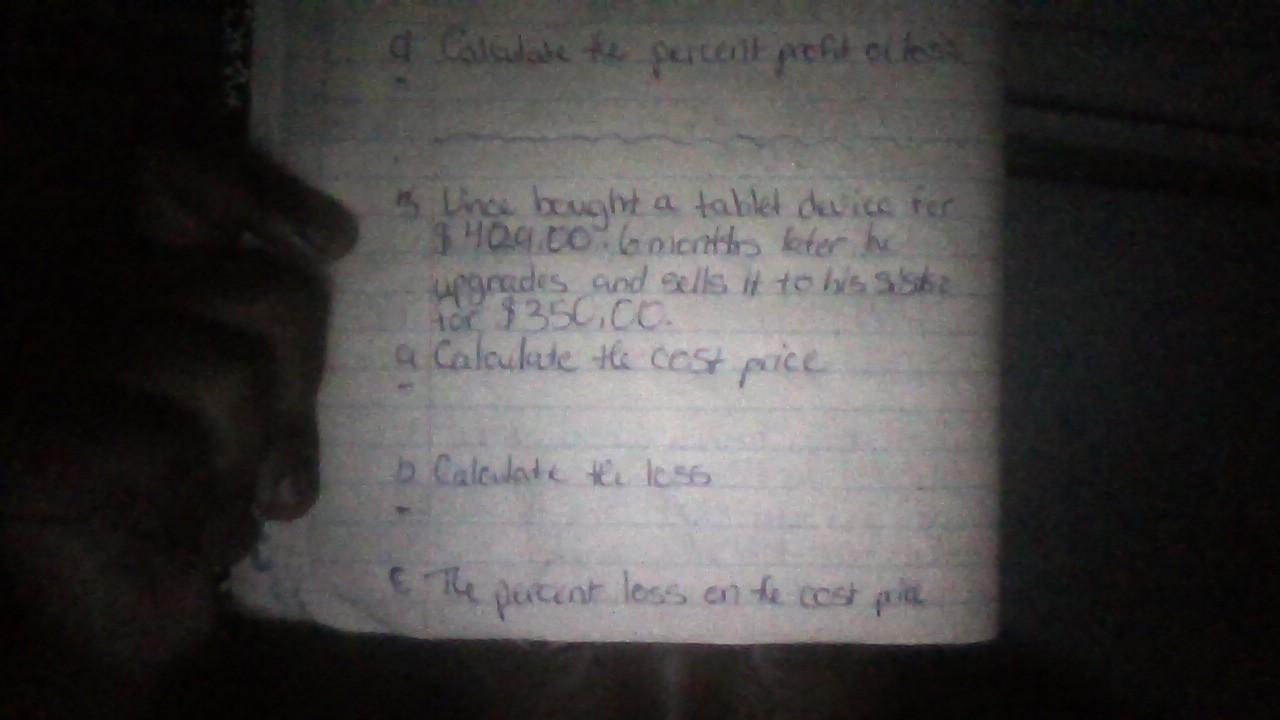 d Calculate the percent profit or loss
bought a tablet device for
$409.00. 6 months later he
upgrades and sells it to his sister
for $350.00.
a Calculate the cost price
b Calculate the loss
c The percent loss on the cost price